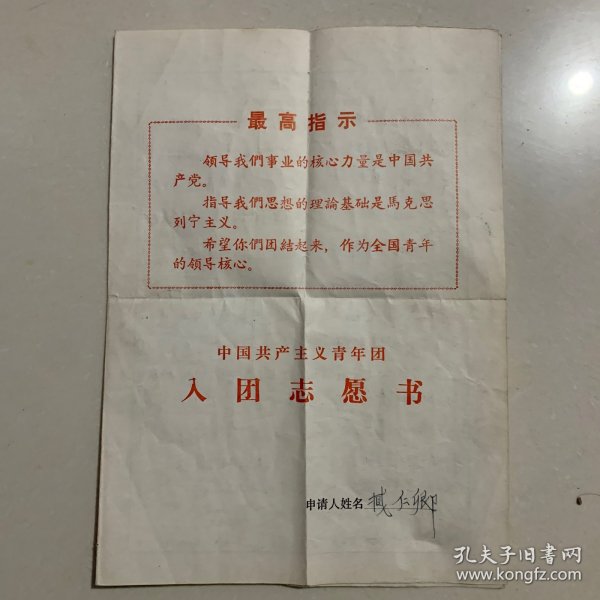 最高指示
领导我們事业的核心力量是中国共
产党。
指导我們思想的理論基础是馬克思
列宁主义。
希望你們团結起来,作为全国青年
的領导核心。
中国共产主义青年团
入团志愿书
申请人姓名 臧仁卿
孔夫子旧書网
www.kongfz.com